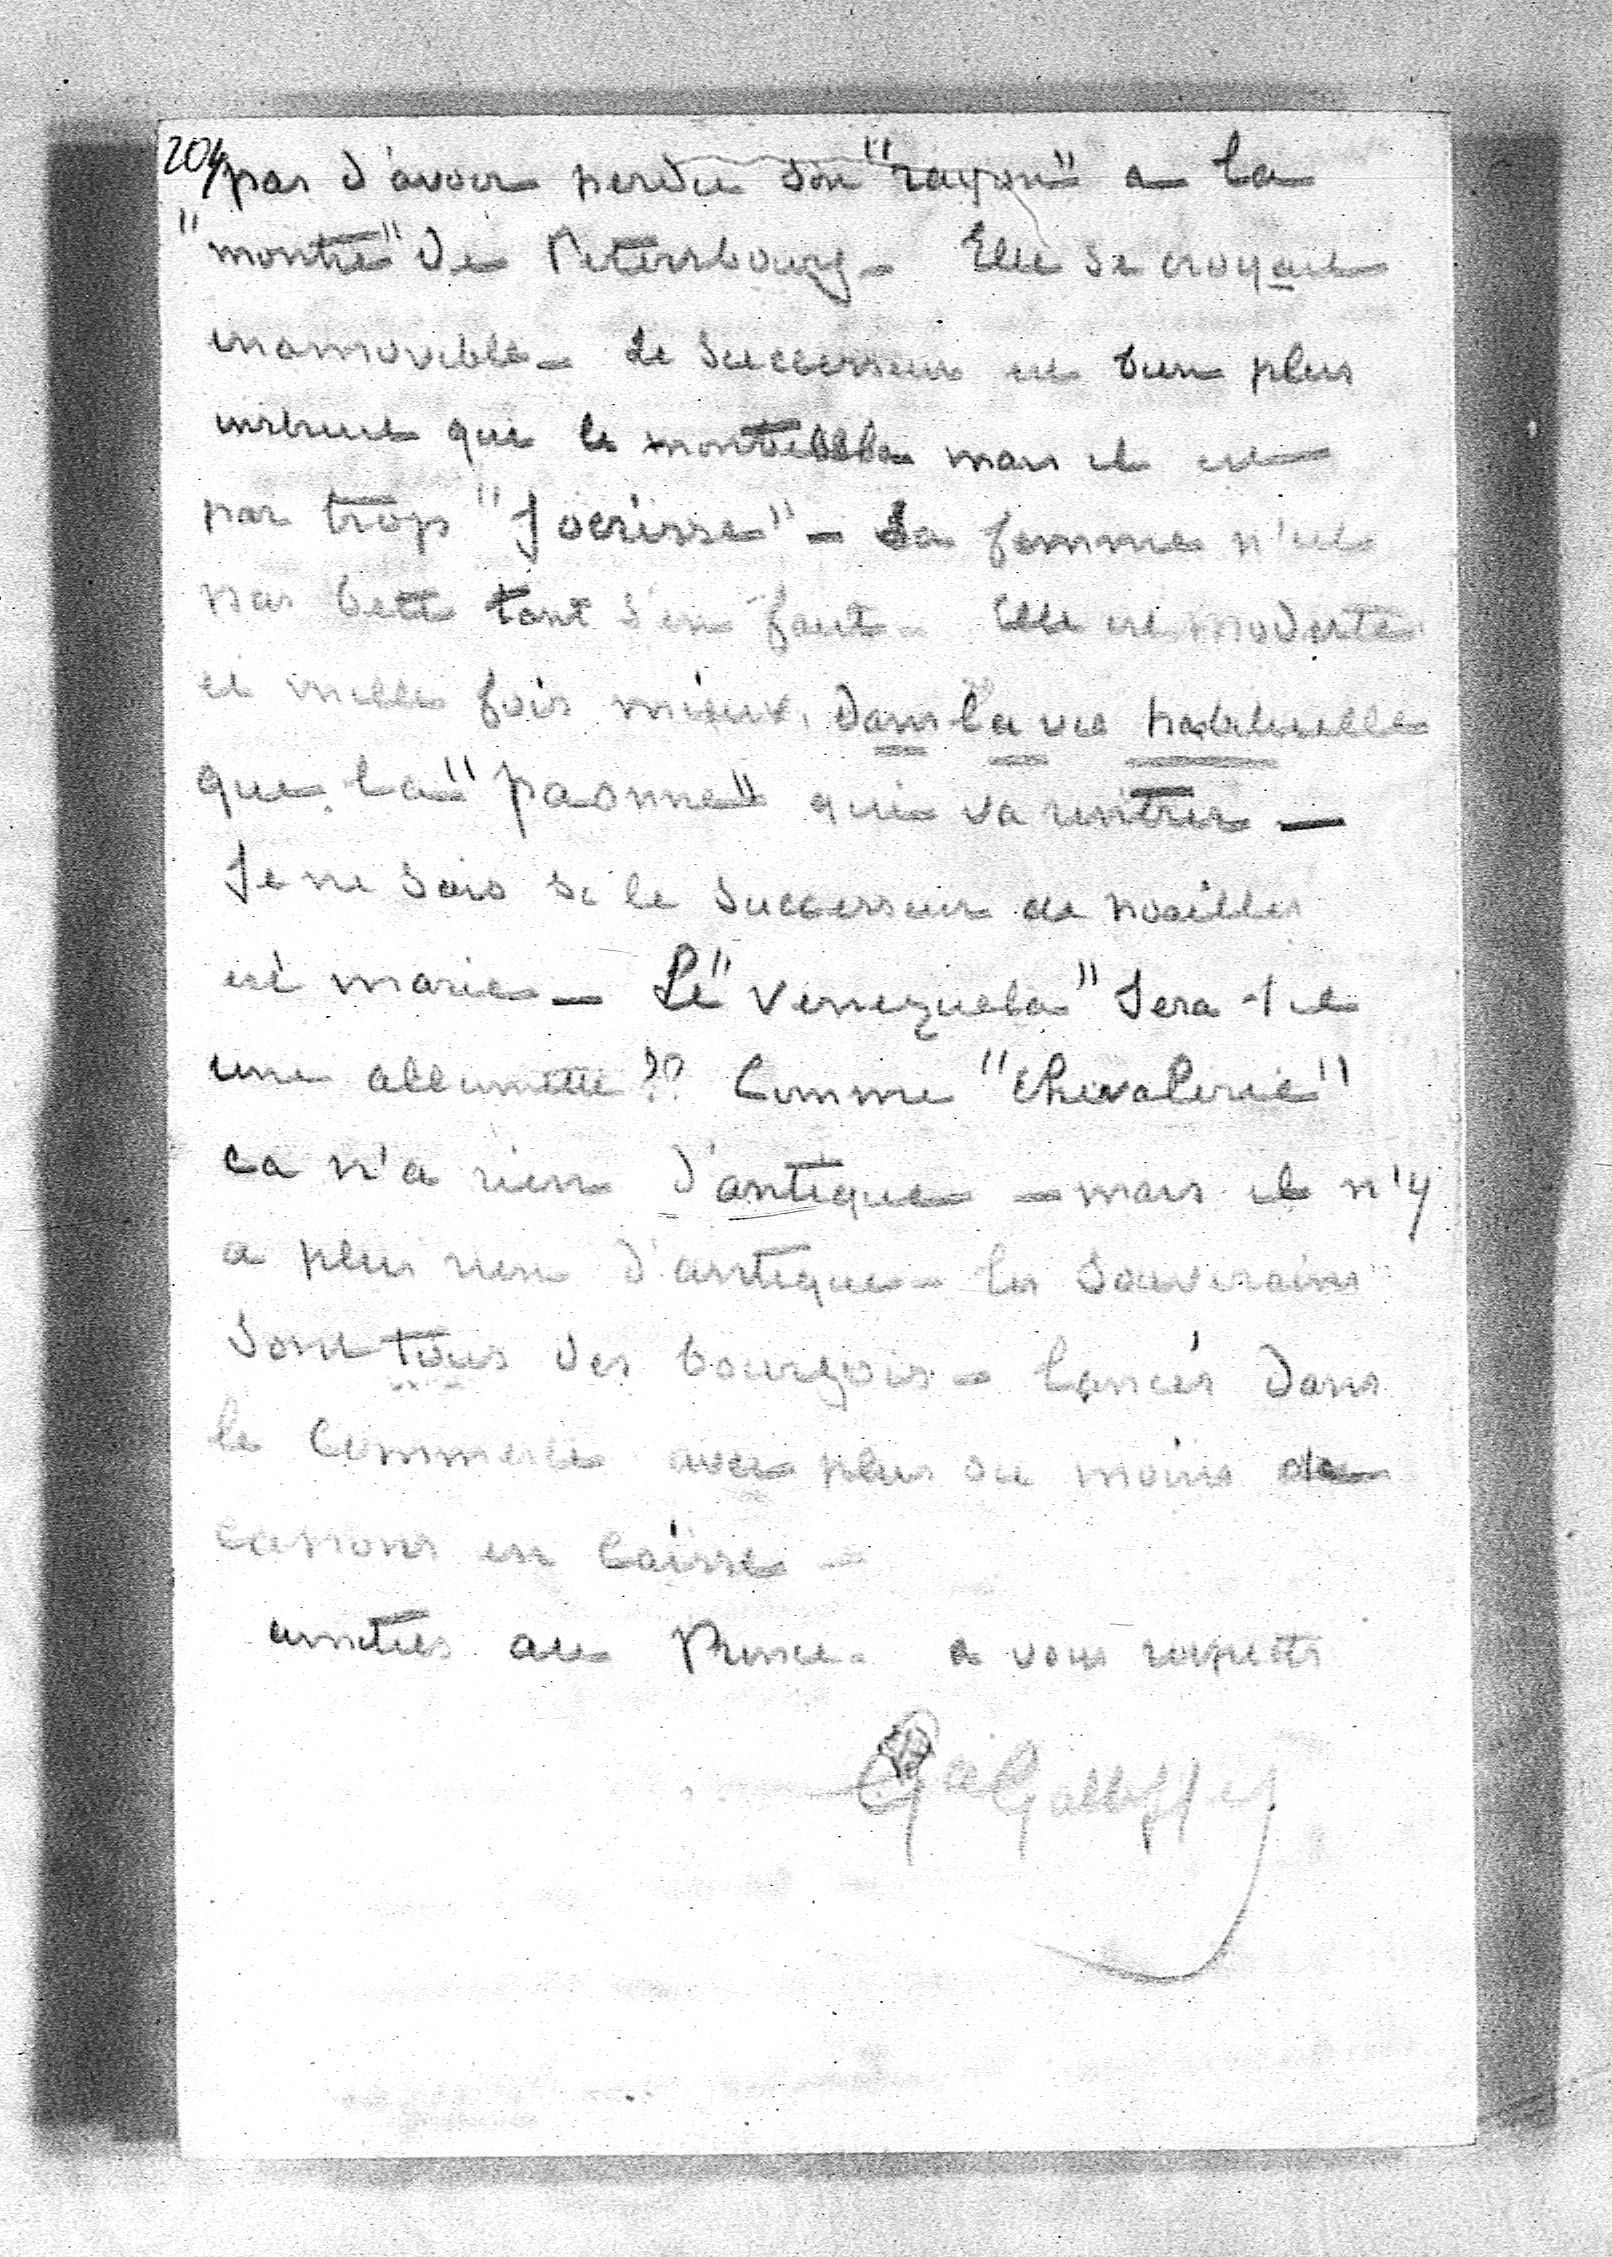 204
pas d'avoir perdu son "rayon" a la
"montre" de Petersbourg - Elle se croyait
inamovible - Le successeur est bien plus
instruit que le montebello mais il est
par trop "Jocrisse" - Sa femme n'est
pas bette tant s'en faut - Elle est modeste
et mille fois mieux, dans la vie habituelle
que la "paonne" qui va rentrer -
Je ne sais si le successeur de noailles
est marié - Le "Venezuela" sera-t-il
une allumette ?? Comme "chevalerie"
ca n'a rien d'antique - mais il n'y
a plus rien d'antique - les souverains
sont tous des bourgois - lancés dans
le commerce avec plus ou moins de
canons en caisse -
amitiés au Prince - a vous respects
Gal Galliffet